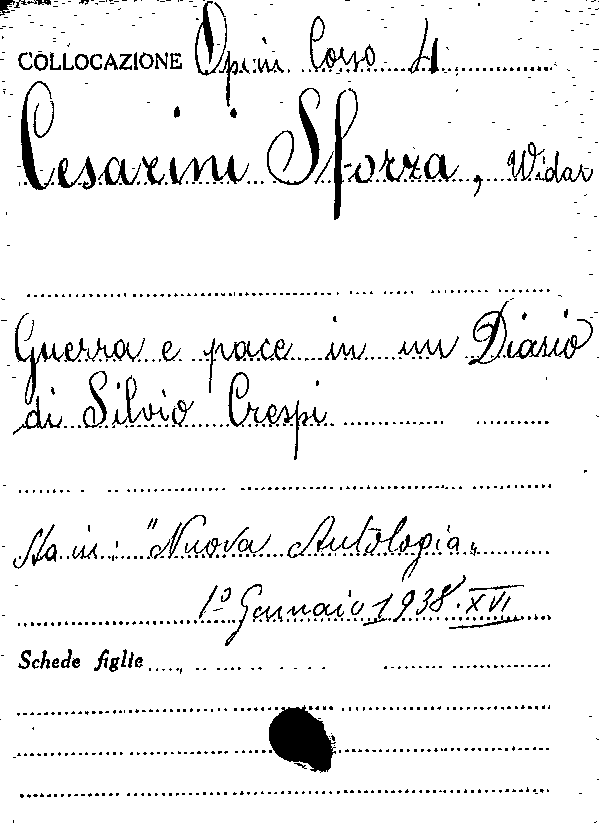 COLLOCAZIONE Opini Corso 4
Cesarini Sforza, Widar
Guerra e pace in un Diario
di Silvio Crespi
Sta in: "Nuova Antologia„
1º Gennaio 1938.XVI
Schede figlie